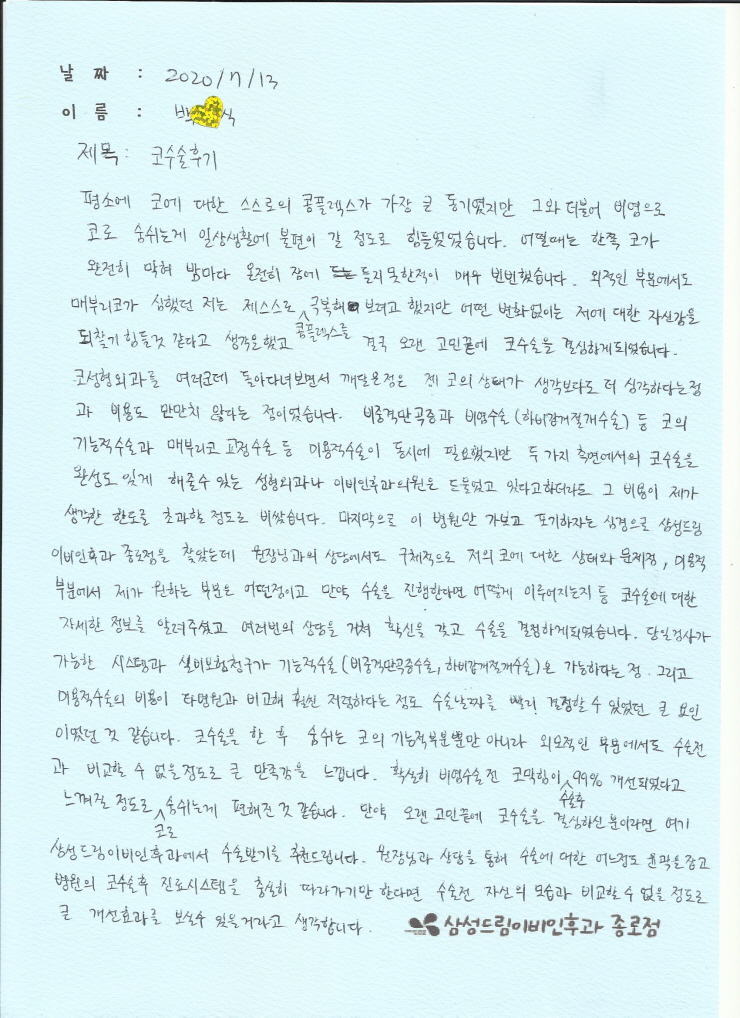 날 짜 : 2020/7/13
이 름 : 박 식
제목 : 코수술후기
평소에 코에 대한 스스로의 콩플렉스가 가장 큰 동기였지만 그와 더불어 비염으로
코로 숨쉬는게 일상생활에 불편이 갈 정도로 힘들었었습니다. 어떨때는 한쪽 코가
완전히 막혀 밤마다 온전히 잠에 들지 못한적이 매우 빈번했습니다. 외적인 부분에서도
매부리코가 심했던 저는 제스스로 콩플렉스를 극복해 보려고 했지만 어떤 변화없이는 저에 대한 자신감을
되찾기 힘들것 같다고 생각을 했고 결국 오랜 고민끝에 코수술을 결심하게되었습니다.
코성형외과를 여러군데 돌아다녀보면서 깨달은점은 젠 코의 상태가 생각보다도 더 심각하다는점
과 비용도 만만치 않다는 점이었습니다. 비중격만곡증과 비염수술(하비갑개절개수술) 등 코의
기능적수술과 매부리코 교정수술 등 미용적수술이 동시에 필요했지만 두가지 측면에서의 코수술을
완성도 있게 해줄수 있는 성형외과나 이비인후과의원은 드물었고 있다고하더라도 그 비용이 제가
생각한 한도를 초과할 정도로 비쌌습니다. 마지막으로 이 병원만 가보고 포기하자는 심경으로 삼성드림
이비인후과 종로점을 찾았는데 원장님과의 상담에서도 구체적으로 저의 코에 대한 상태와 문제점, 미용적
부분에서 제가 원하는 부분은 어떤점이고 만약 수술을 진행한다면 어떻게 이루어지는지 등 코수술에 대한
자세한 정보를 알려주셨고 여러번의 상담을 거쳐 확신을 갖고 수술을 결정하게되었습니다. 당일검사가
가능한 시스템과 실비보험청구가 기능적수술(비중격만곡증수술, 하비갑개절개수술)은 가능하다는 점. 그리고
미용적수술의 비용이 타병원과 비교해 훨씬 저렴하다는 점도 수술날짜를 빨리 결정할 수 있었던 큰 요인
이였던 것 같습니다. 코수술을 한 후 숨쉬는 코의 기능적부분뿐만 아니라 외모적인 부분에서도 수술전
과 비교할 수 없을정도로 큰 만족감을 느낍니다. 확실히 비염수술 전 코막힘이 수술후 99% 개선되었다고
느껴질 정도로 코로 숨쉬는게 편해진 것 같습니다. 만약 오랜 고민끝에 코수술을 결심하신 분이라면 여기
삼성드림이비인후과에서 수술받기를 추천드립니다. 원장님과 상담을 통해 수술에 대한 어느정도 윤곽을 잡고
병원의 코수술후 진료시스템을 충실히 따라가기만 한다면 수술전 자신의 모습과 비교할 수 없을 정도로
큰 개선효과를 보실수 있을거라고 생각합니다.
삼성드림이비인후과 종로점